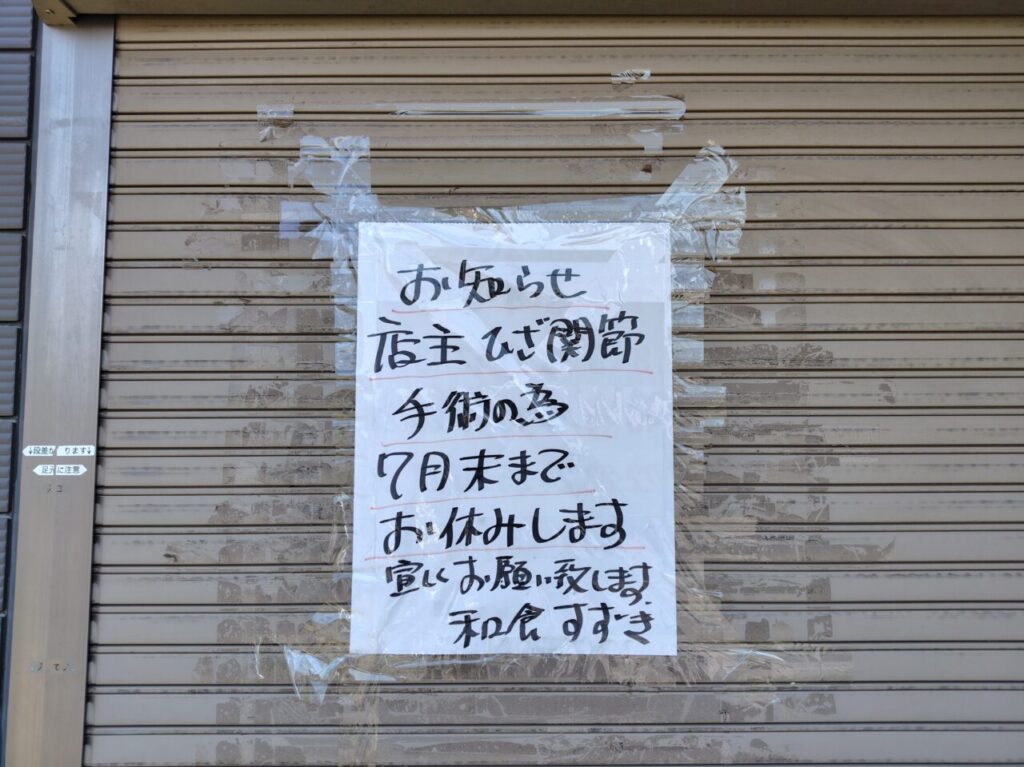 お知らせ
店主 ひざ関節
手術の為
7月末まで
お休みします
宜しくお願い致します。
和食 すずき
足元に注意